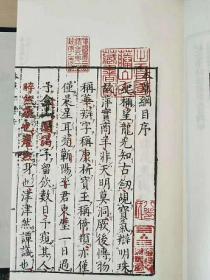 本草綱目序
紀稱望龍光知古劍覘寶氣辯明珠
故萍實商羊非天明莫洞厥後博物
稱華辯字稱康析寶玉稱倚頓亦僅
僅晨星耳楚蘄陽李君東璧一日過
予弇山園謁予留飲數日予觀其人
睟然貌也癯然身也津津然譚議也